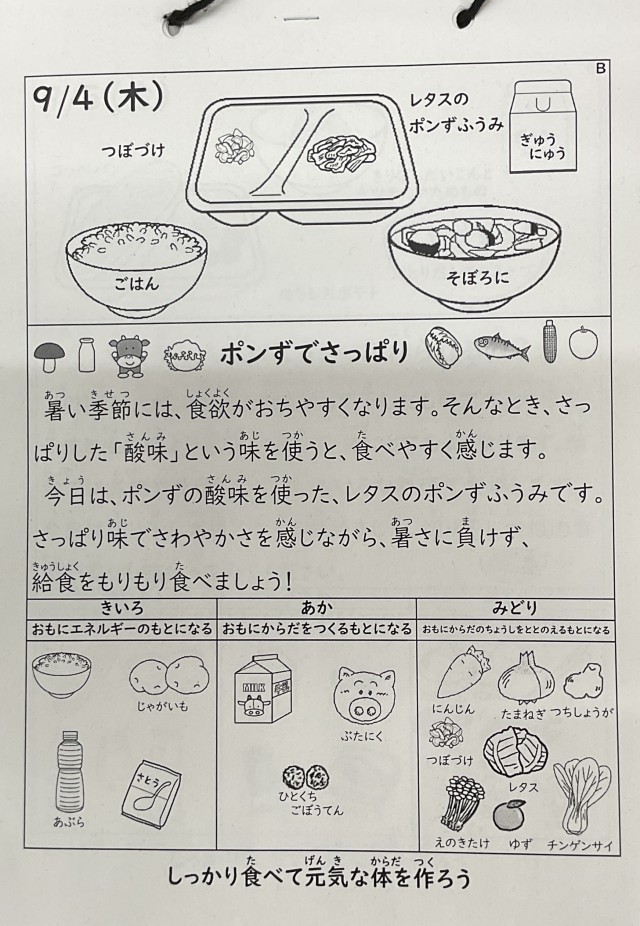 B
9/4(木)
レタスの
ポンずふうみ
ぎゅう
にゅう
つぼづけ
ごはん
そぼろに
ポンずでさっぱり
暑い季節には、食欲がおちやすくなります。そんなとき、さっ
ぱりした「酸味」という味を使うと、食べやすく感じます。
今日は、ポンずの酸味を使った、レタスのポンずふうみです。
さっぱり味でさわやかさを感じながら、暑さに負けず、
給食をもりもり食べましょう!
きいろ
おもにエネルギーのもとになる
じゃがいも
あぶら
さとう
あか
おもにからだをつくるもとになる
MILK
ぶたにく
ひとくち
ごぼうてん
みどり
おもにからだのちょうしをととのえるもとになる
にんじん
たまねぎ
つちしょうが
つぼづけ
レタス
えのきたけ
ゆず
チンゲンサイ
しっかり食べて元気な体を作ろう